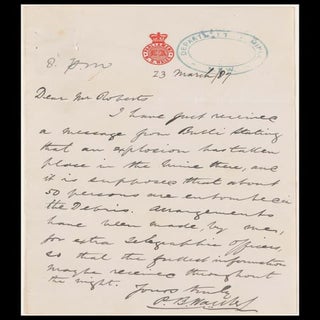 8. pm
DEPARTMENT MINES
N.S.W.
23 March/87
Dear Mr Roberts
I have just received
a message from Bulli stating
that an explosion has taken
place in the mine there, and
it is supposed that about
50 persons are entombed in
the Debris. Arrangements
have been made, by me,
for extra Telegraphic Officers,
so that the fullest information
may be received throughout
the night.
Yours truly
P. B. Walker